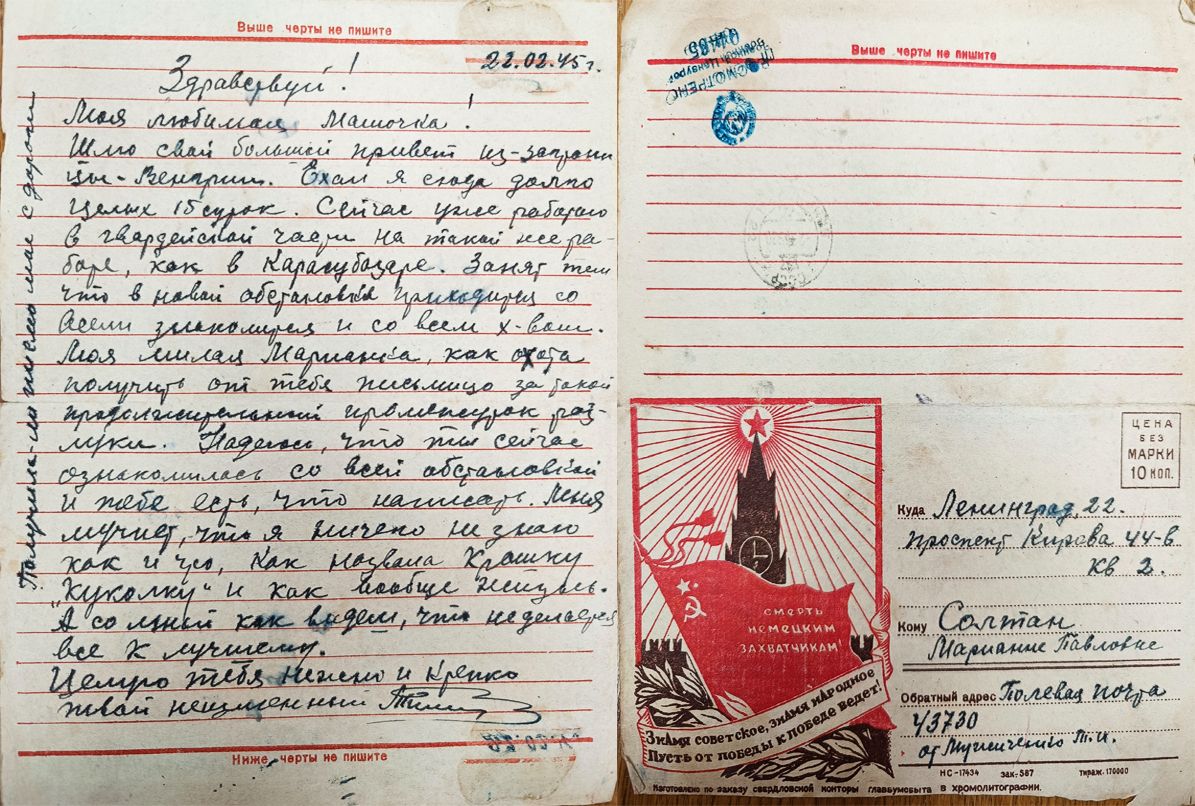 Выше черты не пишите
22.02.45 г.
Здравствуй!
Моя любимая Машочка!
Шлю свой большой привет из-заграни
цы - Венгрии. Ехал я сюда долго
целых 15 суток. Сейчас уже работаю
в гвардейской части на такой же ра-
боте, как в Карасубазаре. Занят тем
что в новой обстановке приходится со
всеми знакомится и со всем х-вом.
Моя милая Марианка, как охота
получить от тебя письмецо за такой
продолжительный срок раз-
луки. Надеюсь, что ты сейчас
ознакомилась со всей обстановкой
и тебе есть, что написать. Меня
мучает, что я ничего не знаю
как и что, как назвала крошку
"Куколку" и как вообще жизнь.
А со мной как видем, что не делается
все к лучшему.
Целую тебя нежно и крепко
твой неизменный
Получила-ли письмо мое с дороги
Ниже черты не пишите
Выше черты не пишите
ПРОСМОТРЕНО
Военной Цензурой
СССР
ЦЕНА
БЕЗ
МАРКИ
10 КОП.
Куда Ленинград, 22.
проспект Кирова 44-в
кв 2.
Кому Солтан
Марианне Павловне
Обратный адрес Полевая почта
43730
от Мужиченко Т.И.
СМЕРТЬ
НЕМЕЦКИМ
ЗАХВАТЧИКАМ
ЗНАМЯ СОВЕТСКОЕ, ЗНАМЯ НАРОДНОЕ
ПУСТЬ ОТ ПОБЕДЫ К ПОБЕДЕ ВЕДЕТ!
НС-17434 зак. 587 тираж. 170000
Изготовлено по заказу свердловской конторы главбумсбыта в хромолитографии.